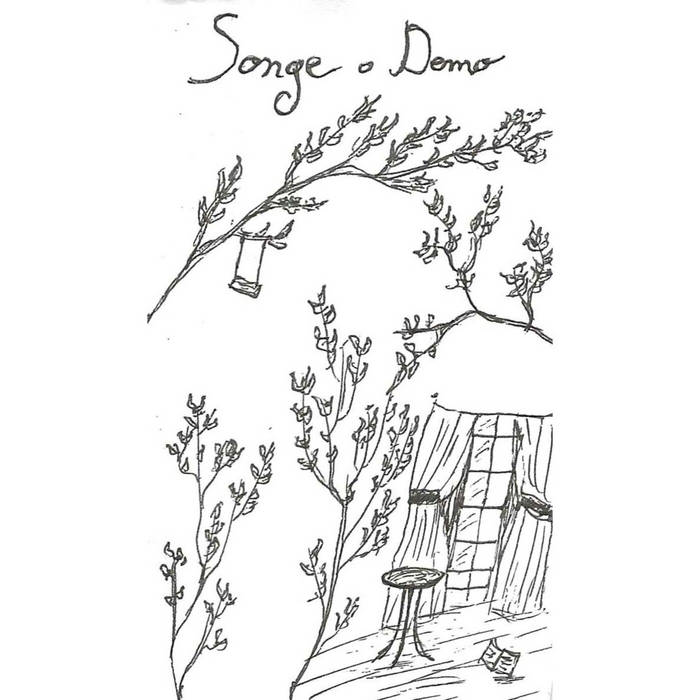 Songe o Demo